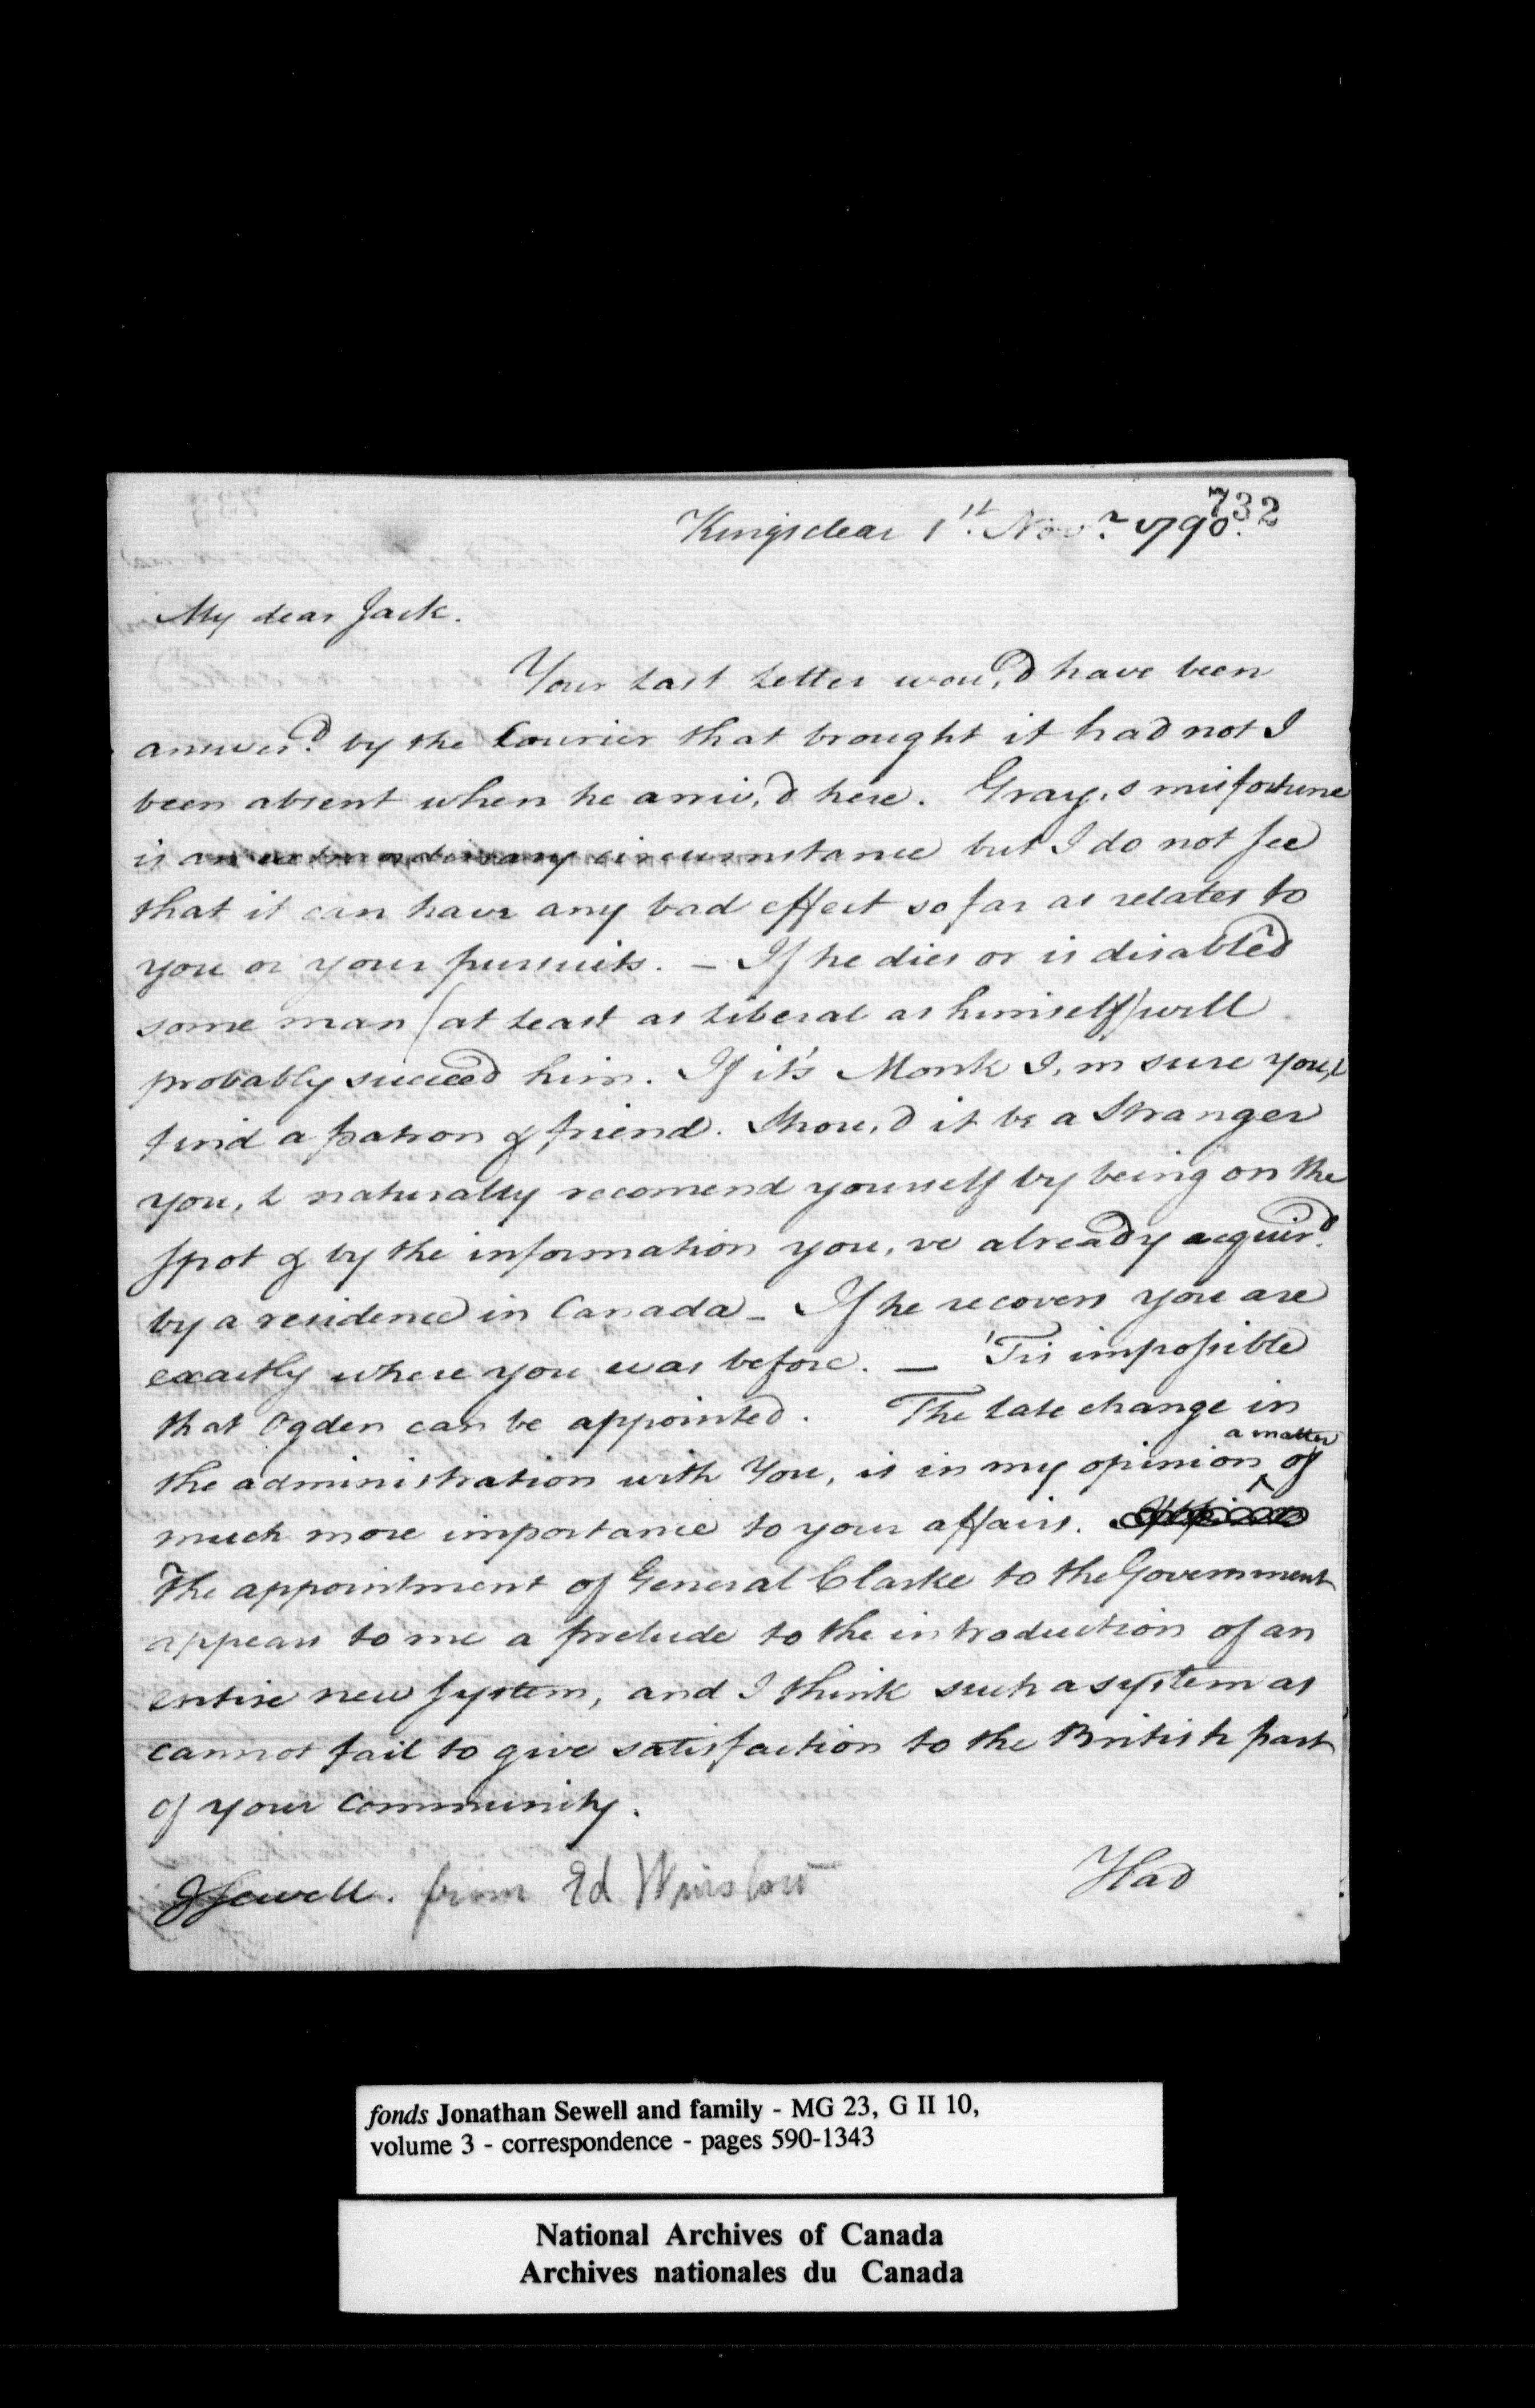 732
Kingsclear 1st. Novr. 1790.
My dear Jack.
Your last letter wou,d have been
answer'd by the Courier that brought it had not I
been absent when he arriv,d here. Gray,s misfortune
is an extraordinary circumstance but I do not see
that it can have any bad effect so far as relates to
you or your pursuits. – If he dies or is disabled
some man (at least as liberal as himself) will
probably succeed him. If it's Monk I,m sure you,l
find a patron & friend. Shou,d it be a Stranger
you,l naturally recomend yourself by being on the
spot & by the information you,ve already acquir'd
by a residence in Canada – If he recovers you are
exactly where you was before. – 'Tis impossible
that Ogden can be appointed. The late change in
the administration with You, is in my opinion a matter of
much more importance to your affairs.
The appointment of General Clarke to the Government
appears to me a prelude to the introduction of an
entire new system, and I think such a system as
cannot fail to give satisfaction to the British part
of your Community.
Had
J Sewell. from Ed Winslow
fonds Jonathan Sewell and family - MG 23, G II 10,
volume 3 - correspondence - pages 590-1343
National Archives of Canada
Archives nationales du Canada